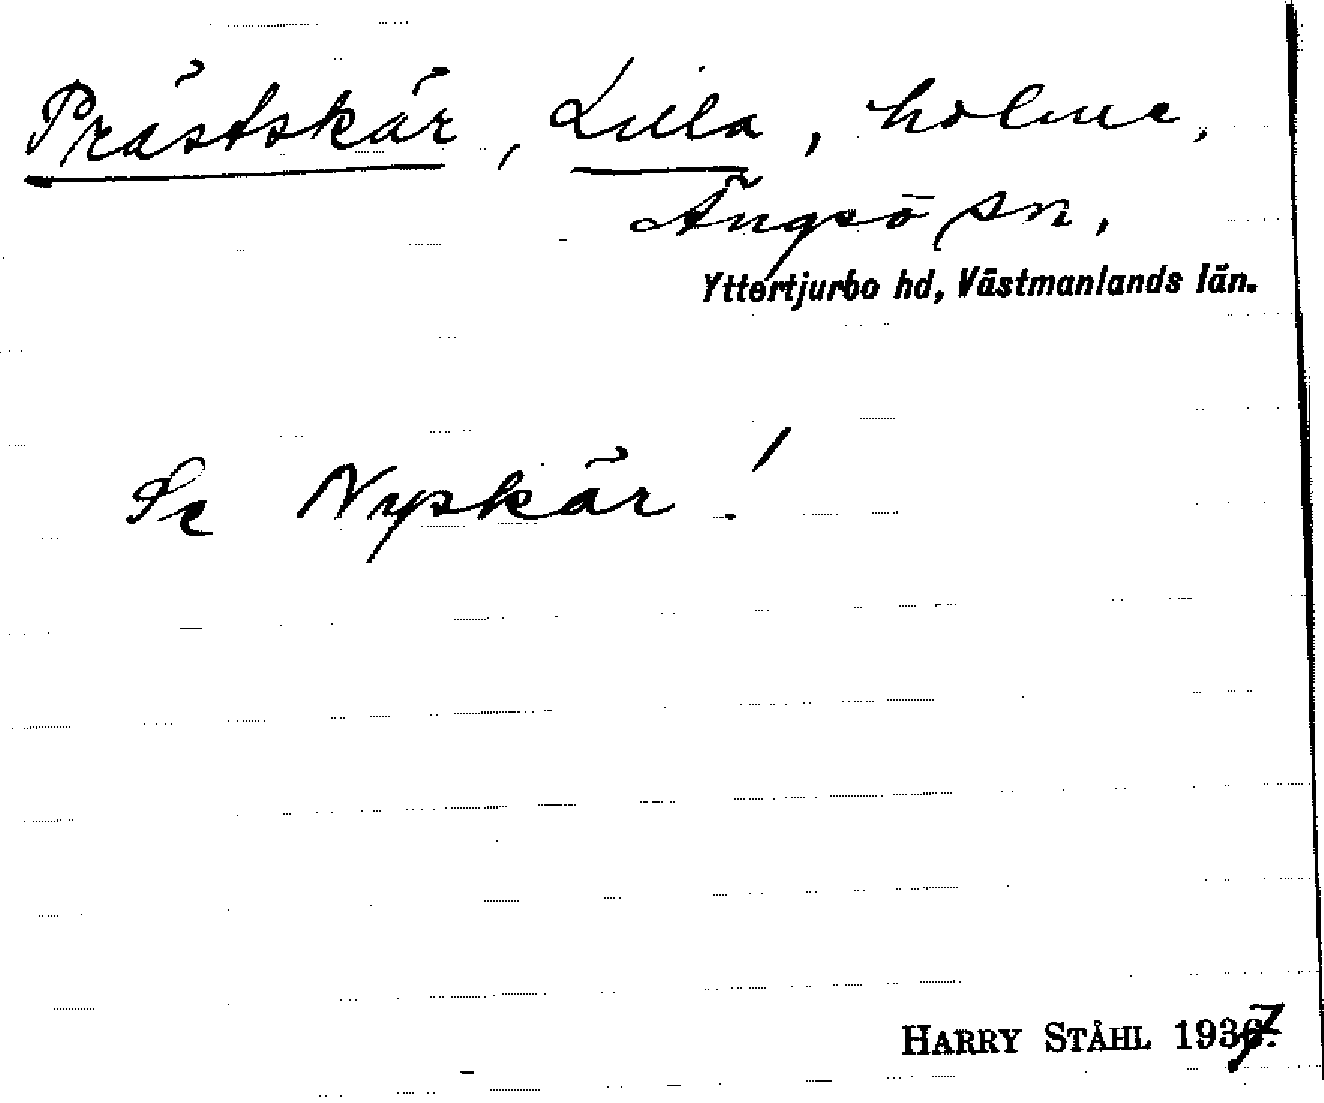 Prästskär, Lilla, holme,
Ängsö sn.
Yttertjurbo hd, Västmanlands län.
Se Nyskär!
HARRY STÅHL 1937.